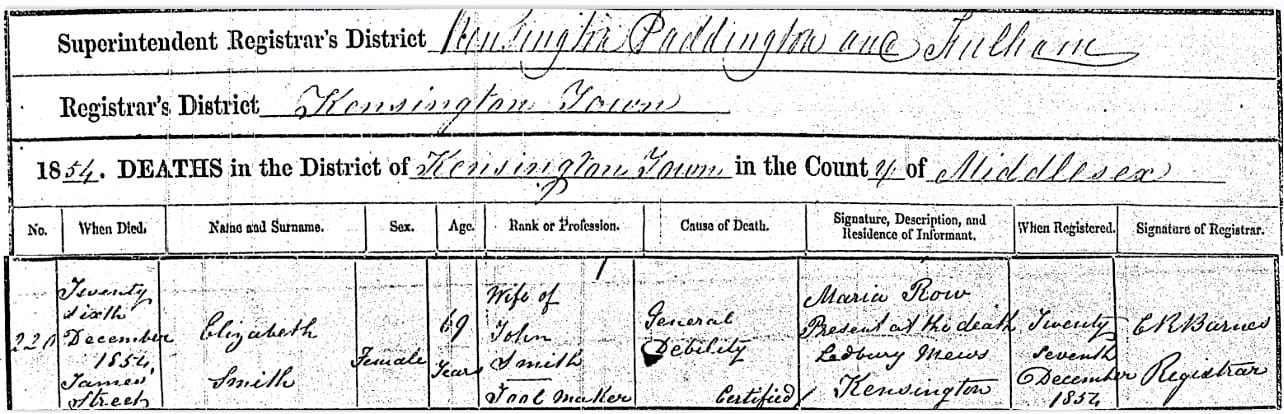 Superintendent Registrar's District Kensington Paddington and Fulham
Registrar's District Kensington Town
1854. DEATHS in the District of Kensington Town in the County of Middlesex
No. When Died. Name and Surname. Sex. Age. Rank or Profession. Cause of Death. Signature, Description, and Residence of Informant. When Registered. Signature of Registrar.
220
Twenty
sixth
December
1854
James
Street
Elizabeth
Smith
Female
69
Years
Wife of
John
Smith
Tool Maker
General
Debility
Certified
Maria Row
Present at the death
Ledbury Mews
Kensington
Twenty
seventh
December
1854
C R Barnes
Registrar